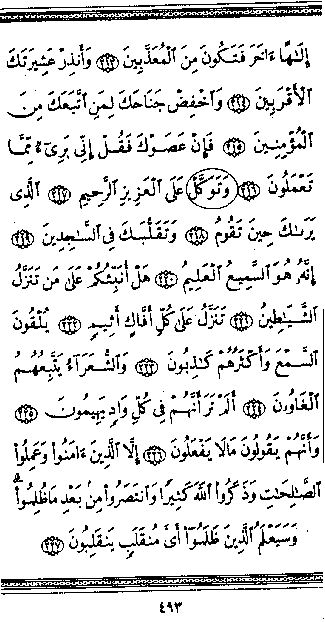 إِلَٰهًا ءَاخَرَ فَتَكُونَ مِنَ ٱلْمُعَذَّبِينَ ٢١٣ وَأَنذِرْ عَشِيرَتَكَ
ٱلْأَقْرَبِينَ ٢١٤ وَٱخْفِضْ جَنَاحَكَ لِمَنِ ٱتَّبَعَكَ مِنَ
ٱلْمُؤْمِنِينَ ٢١٥ فَإِنْ عَصَوْكَ فَقُلْ إِنِّى بَرِىٓءٌ مِّمَّا
تَعْمَلُونَ ٢١٦ وَتَوَكَّلْ عَلَى ٱلْعَزِيزِ ٱلرَّحِيمِ ٢١٧ ٱلَّذِى
يَرَىٰكَ حِينَ تَقُومُ ٢١٨ وَتَقَلُّبَكَ فِى ٱلسَّٰجِدِينَ ٢١٩
إِنَّهُۥ هُوَ ٱلسَّمِيعُ ٱلْعَلِيمُ ٢٢٠ هَلْ أُنَبِّئُكُمْ عَلَىٰ مَن تَنَزَّلُ
ٱلشَّيَٰطِينُ ٢٢١ تَنَزَّلُ عَلَىٰ كُلِّ أَفَّاكٍ أَثِيمٍ ٢٢٢ يُلْقُونَ
ٱلسَّمْعَ وَأَكْثَرُهُمْ كَٰذِبُونَ ٢٢٣ وَٱلشُّعَرَآءُ يَتَّبِعُهُمُ
ٱلْغَاوُۥنَ ٢٢٤ أَلَمْ تَرَ أَنَّهُمْ فِى كُلِّ وَادٍ يَهِيمُونَ ٢٢٥
وَأَنَّهُمْ يَقُولُونَ مَا لَا يَفْعَلُونَ ٢٢٦ إِلَّا ٱلَّذِينَ ءَامَنُوا۟ وَعَمِلُوا۟
ٱلصَّٰلِحَٰتِ وَذَكَرُوا۟ ٱللَّهَ كَثِيرًا وَٱنتَصَرُوا۟ مِنۢ بَعْدِ مَا ظُلِمُوا۟ ۗ
وَسَيَعْلَمُ ٱلَّذِينَ ظَلَمُوٓا۟ أَىَّ مُنقَلَبٍ يَنقَلِبُونَ ٢٢٧
٤٩٣